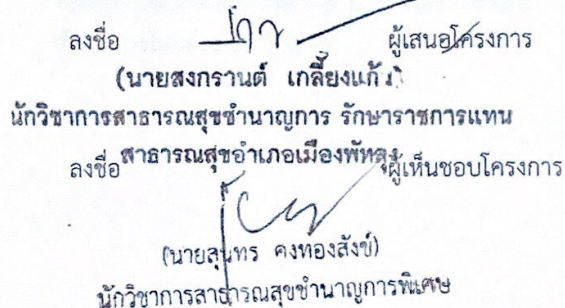 ลงชื่อ ผู้เสนอโครงการ
(นายสงกรานต์ เกลี้ยงแก้ว)
นักวิชาการสาธารณสุขชำนาญการ รักษาราชการแทน
สาธารณสุขอำเภอเมืองพัทลุง
ลงชื่อ ผู้เห็นชอบโครงการ
(นายสุนทร คงทองสังข์)
นักวิชาการสาธารณสุขชำนาญการพิเศษ